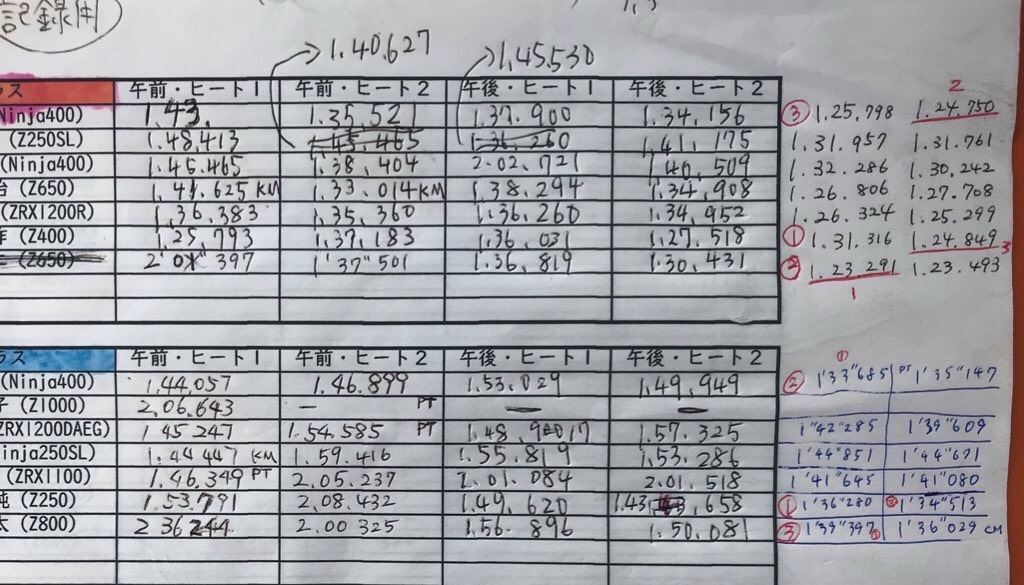 記録用
1.40.627 1.45.530
ラス 午前・ヒート1 午前・ヒート2 午後・ヒート1 午後・ヒート2 2
Ninja400) 1.43. 1.35.521 1.37.900 1.34.156 ③ 1.25.798 1.24.750
(Z250SL) 1.48.413 1.45.465 1.36.260 1.41.175 1.31.957 1.31.761
(Ninja400) 1.45.465 1.38.404 2.02.721 1.40.509 1.32.286 1.30.242
台 (Z650) 1.41.625 KM 1.33.014 KM 1.38.294 1.34.908 1.26.806 1.27.708
(ZRX1200R) 1.36.383 1.35.360 1.36.260 1.34.952 1.26.324 1.25.299
(Z400) 1.25.793 1.37.183 1.36.031 1.27.518 ① 1.31.316 1.24.849 3
(Z650) 397 1'37"501 1.36.819 1.30.431 ② 1.23.291 1.23.493
1
ラス 午前・ヒート1 午前・ヒート2 午後・ヒート1 午後・ヒート2 ①
(Ninja400) 1.44.057 1.46.899 1.53.029 1.49.949 ② 1'33"685 PT 1'35"147
子 (Z1000) 2.06.643 — PT — —
ZRX1200DAEG) 1 45 247 1.54.585 PT 1.48. 1.57.325 1'42"285 1'39"609
inja250SL) 1.44.447 KM 1.59.416 1.55.819 1.53.286 1'44"851 1'44"671
(ZRX1100) 1.46.349 PT 2.05.237 2.01.084 2.01.518 1'41"645 1'41"080
純 (Z250) 1.53.791 2.08.432 1.49.620 1.43.658 ① 1'36"280 1'34"513
太 (Z800) 2 36 244 2.00 325 1.56.896 1.50.081 ③ 1'39"397 1'36"029 CM